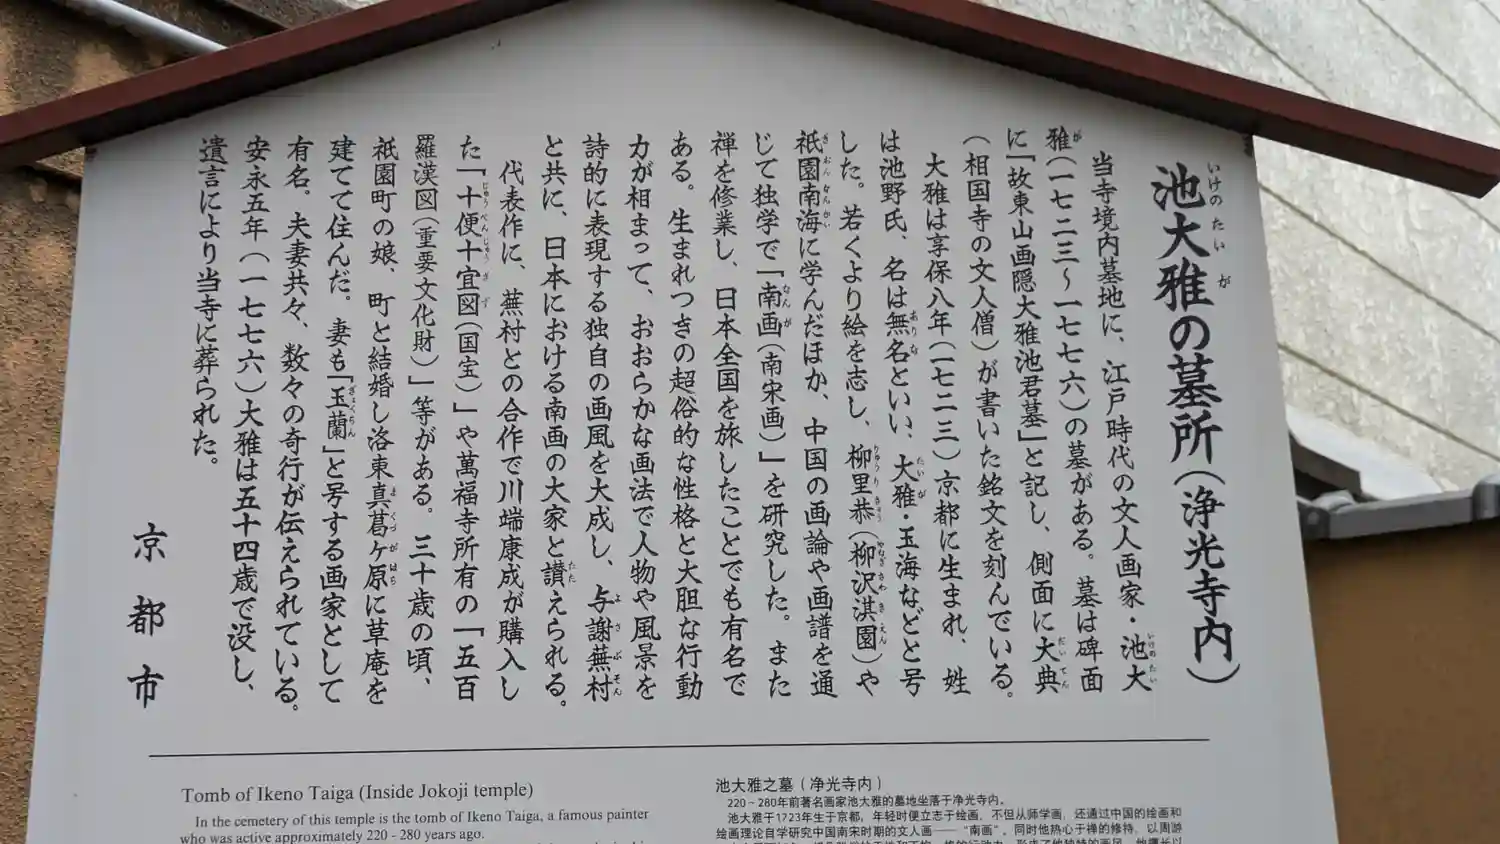 池大雅の墓所(浄光寺内)
当寺境内墓地に、江戸時代の文人画家・池大
雅(一七二三〜一七七六)の墓がある。墓は碑面
に「故東山画隠大雅池君墓」と記し、側面に大典
(相国寺の文人僧)が書いた銘文を刻んでいる。
大雅は享保八年(一七二三)京都に生まれ、姓
は池野氏、名は無名といい、大雅・玉海などと号
した。若くより絵を志し、柳里恭(柳沢淇園)や
祇園南海に学んだほか、中国の画論や画譜を通
じて独学で「南画(南宋画)」を研究した。また
禅を修業し、日本全国を旅したことでも有名で
ある。生まれつきの超俗的な性格と大胆な行動
力が相まって、おおらかな画法で人物や風景を
詩的に表現する独自の画風を大成し、与謝蕪村
と共に、日本における南画の大家と讃えられる。
代表作に、蕪村との合作で川端康成が購入し
た「十便十宜図(国宝)」や萬福寺所有の「五百
羅漢図(重要文化財)」等がある。三十歳の頃、
祇園町の娘、町と結婚し洛東真葛ヶ原に草庵を
建てて住んだ。妻も「玉蘭」と号する画家として
有名。夫妻共々、数々の奇行が伝えられている。
安永五年(一七七六)大雅は五十四歳で没し、
遺言により当寺に葬られた。
京都市
Tomb of Ikeno Taiga (Inside Jokoji temple)
In the cemetery of this temple is the tomb of Ikeno Taiga, a famous painter
who was active approximately 220 - 280 years ago.
池大雅之墓(净光寺内)
220~280年前著名画家池大雅的墓地坐落于净光寺内。
池大雅于1723年生于京都,年轻时便立志于绘画,不但从师学画,还通过中国的绘画和
绘画理论自学研究中国南宋时期的文人画——“南画”。同时他热心于禅的修持,以周游